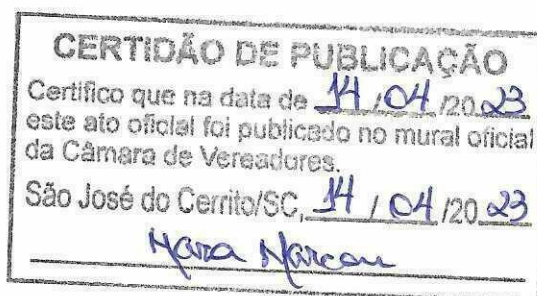 CERTIDÃO DE PUBLICAÇÃO
Certifico que na data de 14/04/2023
este ato oficial foi publicado no mural oficial
da Câmara de Vereadores.
São José do Cerrito/SC, 14/04/2023
Mara Marcon